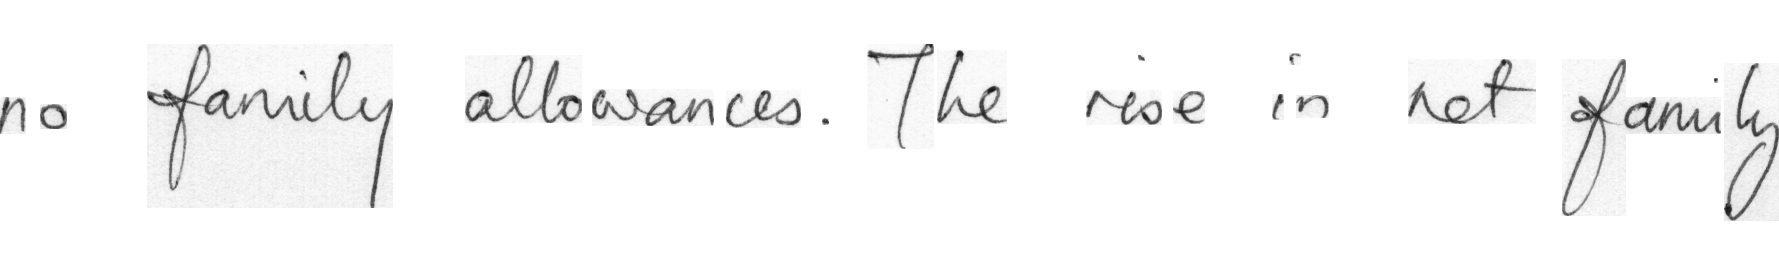 no family allowances. The rise in net family